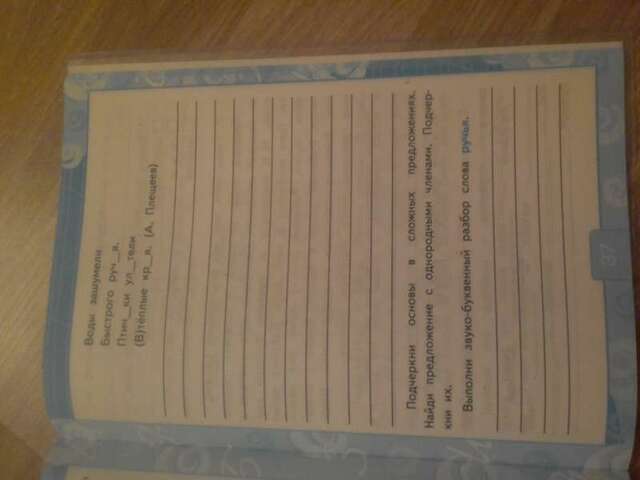 Воды зашумели
Быстрого руч_я,
Птич_ки ул_тели
(В)тёплые кр_я. (А. Плещеев)
Подчеркни основы в сложных предложениях.
Найди предложение с однородными членами. Подчер-
кни их.
Выполни звуко-буквенный разбор слова ручья.
37